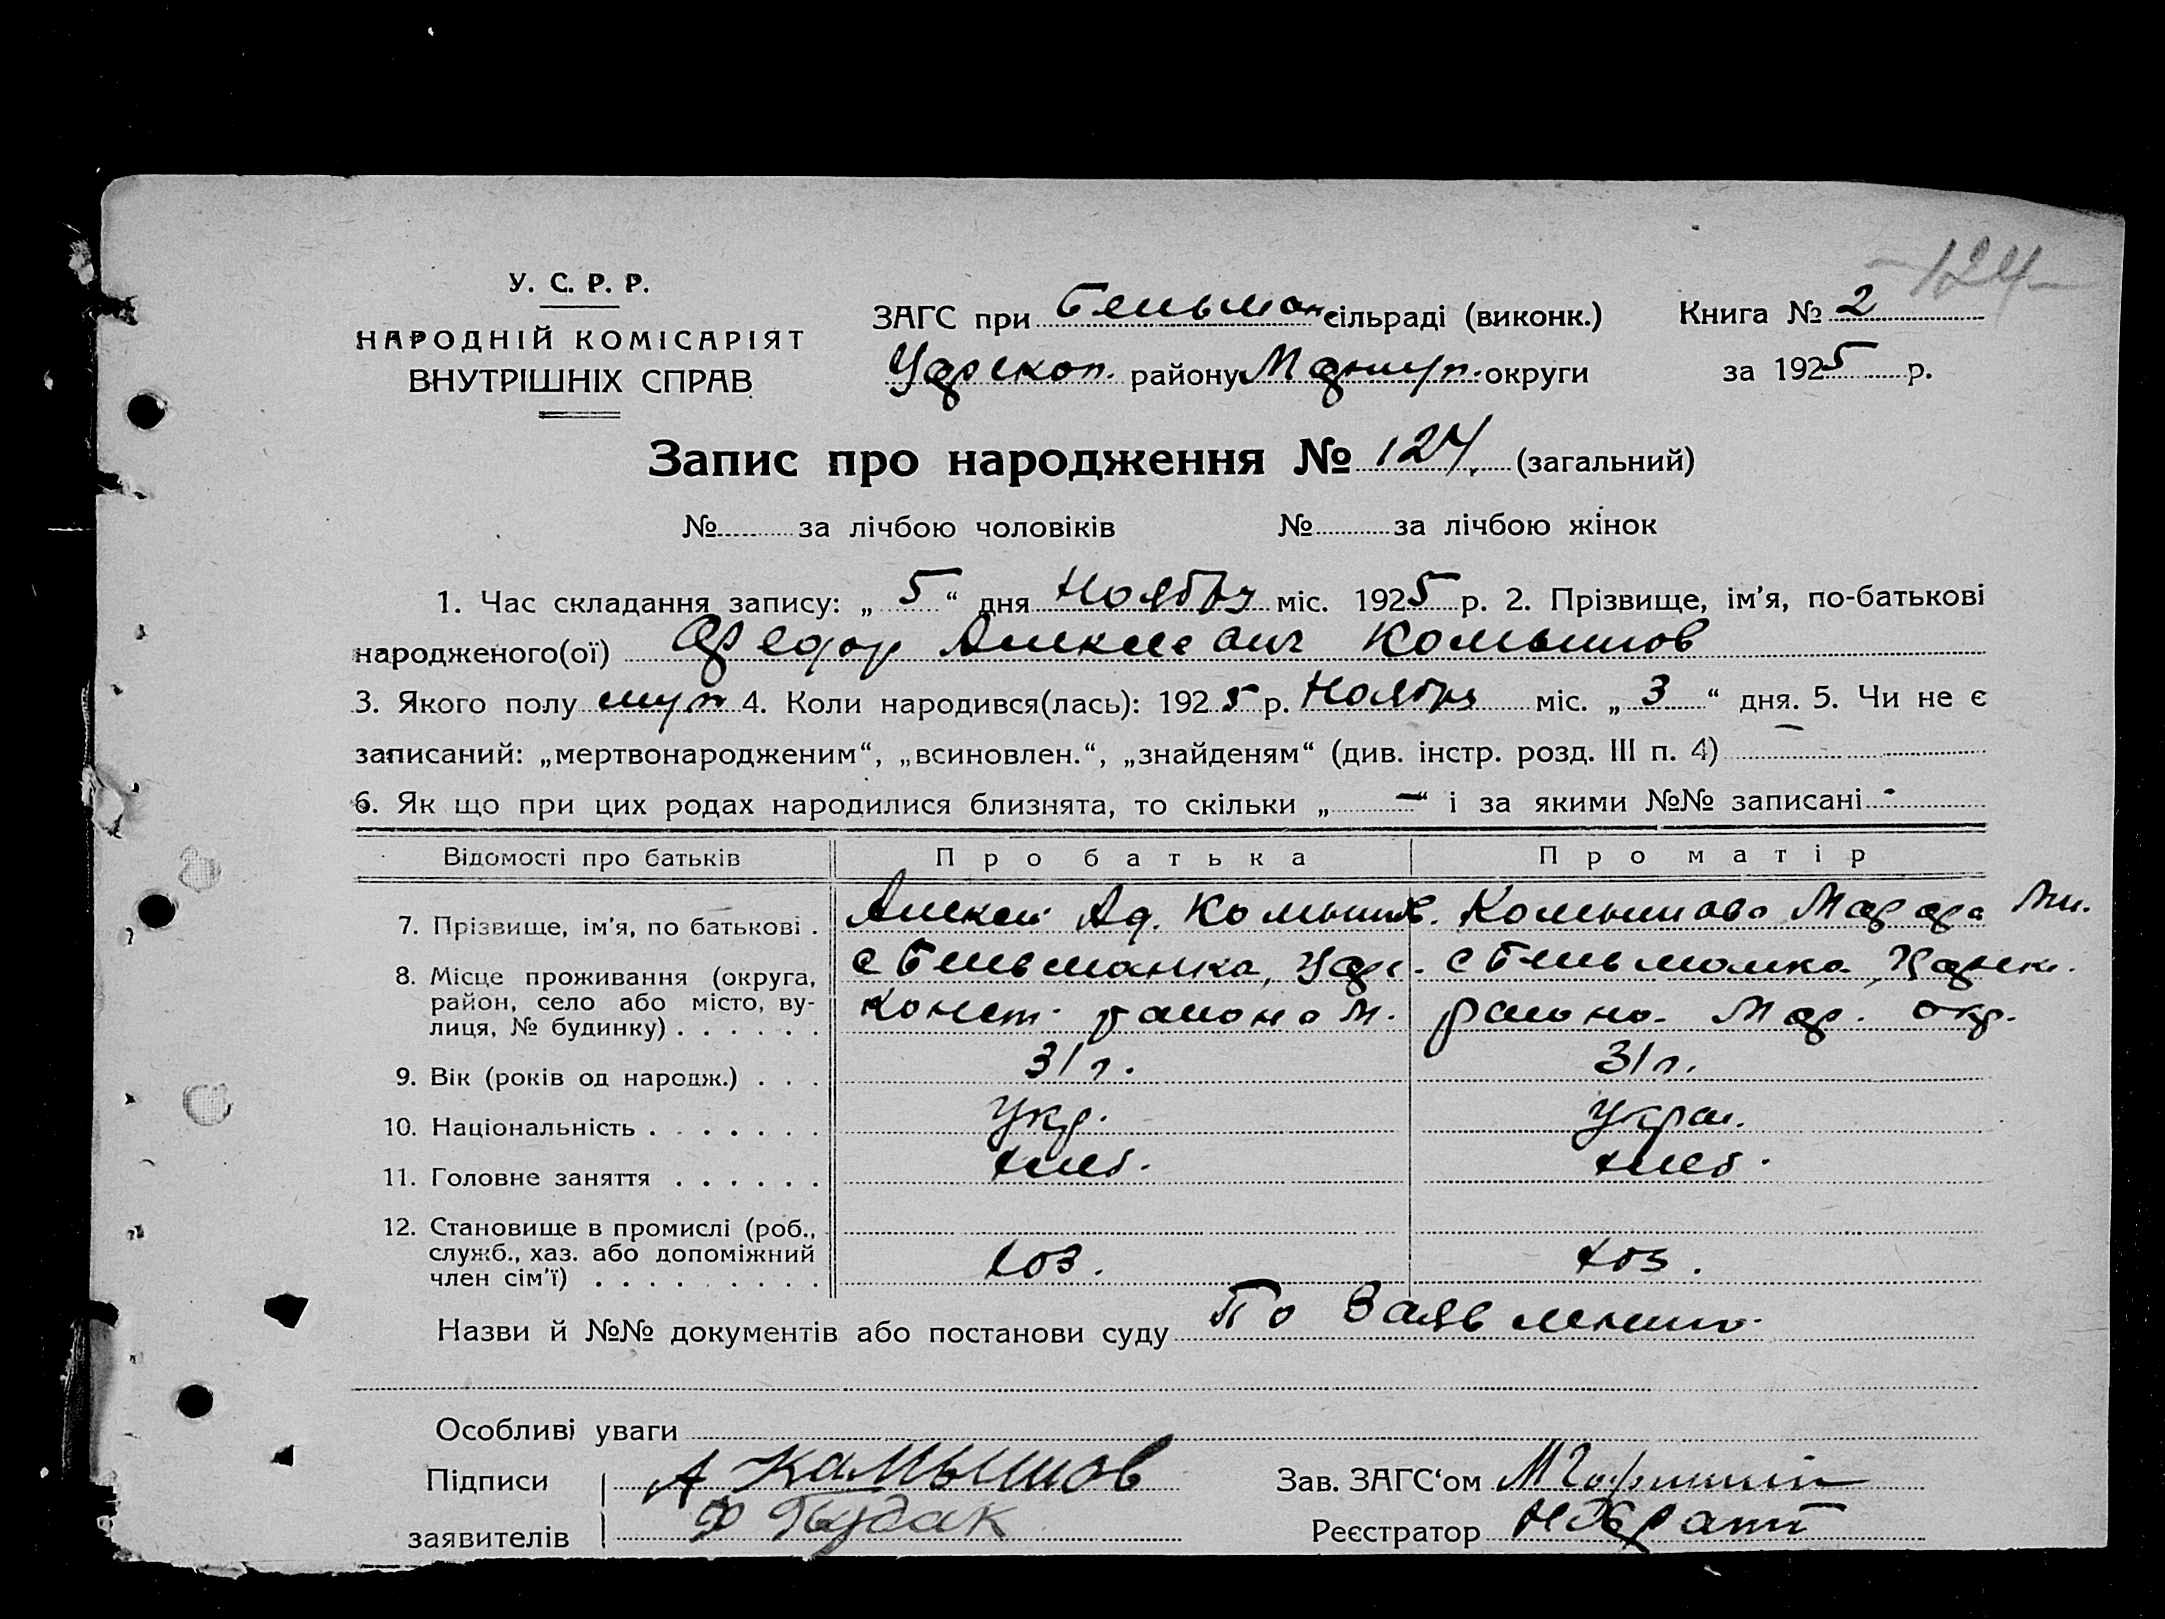 -124-
У. С. Р. Р.
НАРОДНІЙ КОМІСАРІЯТ
ВНУТРІШНІХ СПРАВ
ЗАГС при Бельман сільраді (виконк.)
Царекон. району Мариуп. округи
Книга № 2
за 1925 р.
Запис про народження № 124. (загальний)
№ за лічбою чоловіків № за лічбою жінок
1. Час складання запису: „ 5 “ дня Ноября міс. 1925 р. 2. Прізвище, ім'я, по-батькові
народженого(ої) Федор Алексеевич Комышов
3. Якого полу муж 4. Коли народився(лась): 1925 р. Ноября міс. „ 3 “ дня. 5. Чи не є
записаний: „мертвонародженим“, „всиновлен.“, „знайденям“ (див. інстр. розд. III п. 4) —
6. Як що при цих родах народилися близнята, то скільки „ — “ і за якими №№ записані -
Відомості про батьків Про батька Про матір
7. Прізвище, ім'я, по батькові . Алексей Ад. Комышов. Комышова Марфа
8. Місце проживання (округа, с Бельманка, Царе- с Бельманка, Царек.
район, село або місто, ву- конст. района М. района Мар. окр.
лиця, № будинку) . . . . . .
9. Вік (років од народж.) . . . 31 л. 31 л.
10. Національність . . . . . . . Укр. Украи.
11. Головне заняття . . . . . . хлеб. хлеб.
12. Становище в промислі (роб.,
служб., хаз. або допоміжний хоз. хоз.
член сім'ї) . . . . . . . . .
Назви й №№ документів або постанови суду По Заявлению.
Особливі уваги
Підписи А Камышов Зав. ЗАГС'ом
заявителів Реєстратор